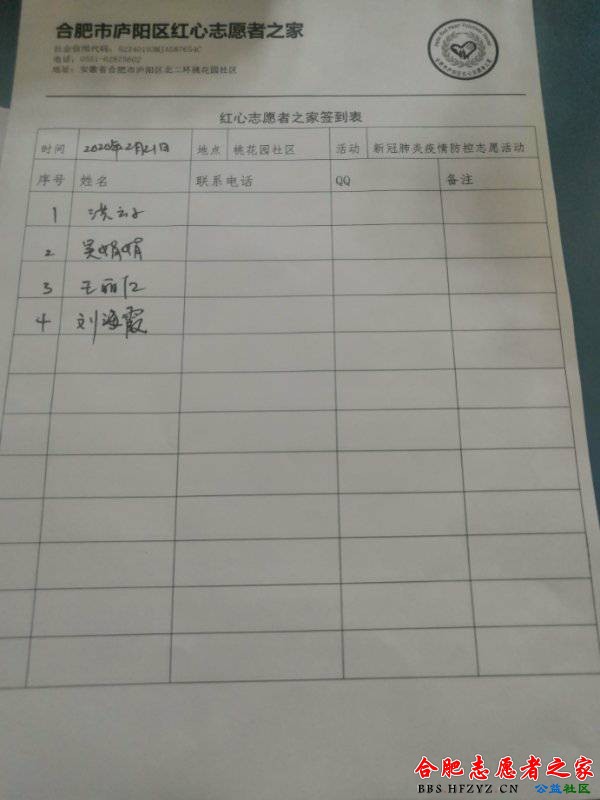 合肥市庐阳区红心志愿者之家
电话：0551-62875602
地址：安徽省合肥市庐阳区北二环桃花园社区
红心志愿者之家签到表
时间 2020年2月21日 地点 桃花园社区 活动 新冠肺炎疫情防控志愿活动
序号 姓名 联系电话 QQ 备注
1 洪
2 吴娟娟
3 王丽红
4 刘海霞
合肥志愿者之家
BBS.HFZYZ.CN 公益社区